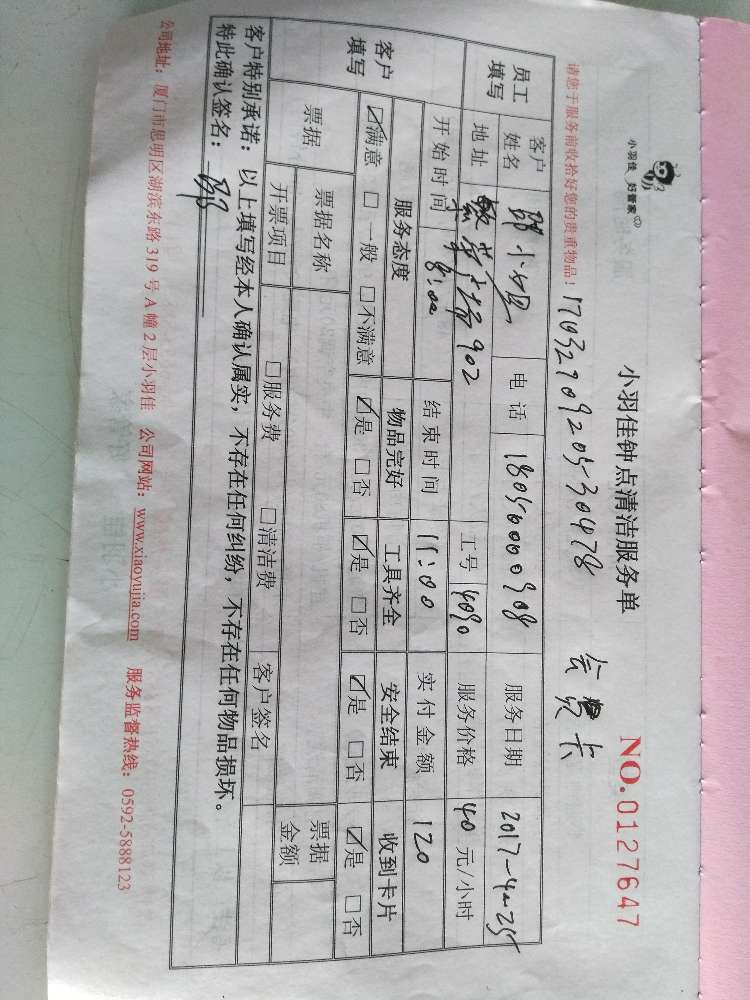 小羽佳 好管家
小羽佳钟点清洁服务单
NO.0127647
请您于服务前收拾好您的贵重物品！
1703270920530478 会员卡
员工填写
客户姓名 小姐 电话 18050000908 服务日期 2017-4-25
地址 902 工号 4090 服务价格 40 元/小时
开始时间 8:00 结束时间 11:00 实付金额 120
客户填写
服务态度 物品完好 工具齐全 安全结束 收到卡片
☑满意 □一般 □不满意 ☑是 □否 ☑是 □否 ☑是 □否 ☑是 □否
票据 票据名称 票据金额
开票项目 □服务费 □清洁费 客户签名
客户特别承诺：以上填写经本人确认属实，不存在任何纠纷，不存在任何物品损坏。
特此确认签名：
公司地址：厦门市思明区湖滨东路319号A幢2层小羽佳 公司网站：www.xiaoyujia.com 服务监督热线：0592-5888123